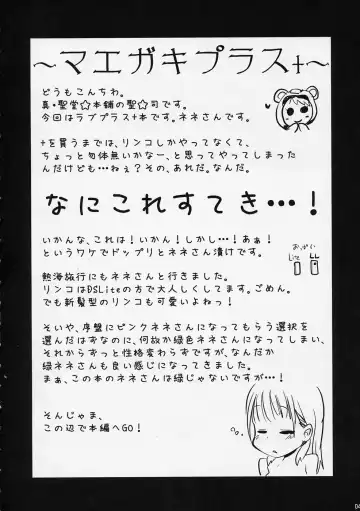 ～マエガキプラス+～
どうもこんちわ。
真・聖堂☆本舗の聖☆司です。
今回はラブプラス+本です。ネネさんです。
+を買うまでは、リンコしかやってなくて、
ちょっと勿体無いかなー、と思ってやってしまった
んだけども…ねぇ？その、あれだ。なんだ。
なにこれすてき…！
いかんな、これは！いかん！しかし…！あぁ！
というワケでドップリとネネさん漬けです。
熱海旅行にもネネさんと行きました。
リンコはDSLiteの方で大人しくしてます。ごめん。
でも新髪型のリンコも可愛いよねっ！
そいや、序盤にピンクネネさんになってもらう選択を
選んだはずなのに、何故か緑色ネネさんになってしまい、
それからずっと性格変わらずですが、なんだか
緑ネネさんも良い感じになってきました。
まぁ、この本のネネさんは緑じゃないですが…！
そんじゃま、
この辺で本編へGO！